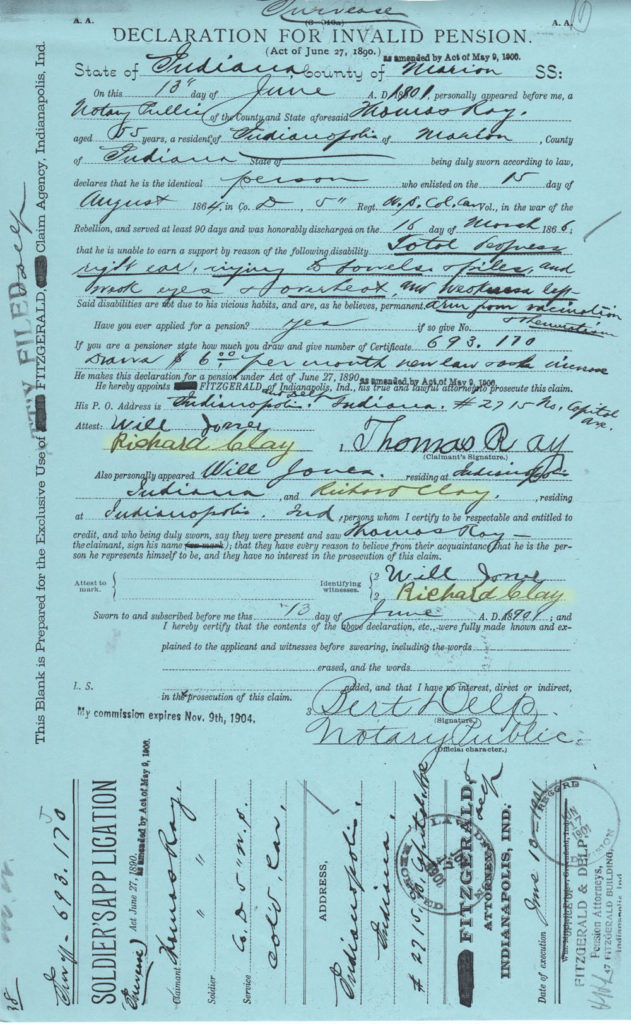 Increase
(3-010a)
A. A.
A. A.
DECLARATION FOR INVALID PENSION.
(Act of June 27, 1890.) as amended by Act of May 9, 1900.
State of Indiana, County of Marion SS:
On this 13" day of June A. D. 1901, personally appeared before me, a
Notary Public of the County and State aforesaid Thomas Ray,
aged 55 years, a resident of Indianopolis of Marion, County
of Indiana State of being duly sworn according to law,
declares that he is the identical person who enlisted on the 15 day of
August 1864, in Co. D, 5" Regt. U.S. Col. Cav Vol., in the war of the
Rebellion, and served at least 90 days and was honorably discharged on the 16 day of March 1866;
that he is unable to earn a support by reason of the following disability Total deafness
right ear, injury to bowels & piles, and
weak eyes & overheat, and weakness left
Said disabilities are not due to his vicious habits, and are, as he believes, permanent. arm from vacination
& rheumatism
Have you ever applied for a pension? yes if so give No.
If you are a pensioner state how much you draw and give number of Certificate 693.170
Draws $ 6.00 per month new law asks increase
He makes this declaration for a pension under Act of June 27, 1890 as amended by Act of May 9, 1900.
He hereby appoints FITZGERALD and Delp of Indianapolis, Ind., his true and lawful attorney to prosecute this claim.
His P. O. Address is Indianopolis. Indiana. # 2715 No. Capitol
Ave.
Attest: Will Jones
Richard Clay, Thomas Ray
(Claimant's Signature.)
Also personally appeared Will Jones. residing at Indianopolis
Indiana, and Richard Clay, residing
at Indianopolis. Ind, persons whom I certify to be respectable and entitled to
credit, and who being duly sworn, say they were present and saw Thomas Ray
the claimant, sign his name (or mark); that they have every reason to believe from their acquaintance that he is the per-
son he represents himself to be, and they have no interest in the prosecution of this claim.
Attest to
mark.
Identifying
witnesses.
Will Jones
Richard Clay
Sworn to and subscribed before me this 13 day of June A. D. 1901; and
I hereby certify that the contents of the above declaration, etc., were fully made known and ex-
plained to the applicant and witnesses before swearing, including the words
erased, and the words
L. S. added, and that I have no interest, direct or indirect,
in the prosecution of this claim.
My commission expires Nov. 9th, 1904.
Bert Delp
(Signature.)
Notary Public
(Official character.)
This Blank is Prepared for the Exclusive Use of FITZGERALD, Claim Agency, Indianapolis, Ind.
& Delp
FILED
693.170
SOLDIER'S APPLICATION
(Increase) Act June 27, 1890.
as amended by Act of May 9, 1900.
Claimant Thomas Ray,
Soldier " "
Service Co. D 5" U.S.
Cold, Cav,
ADDRESS,
Indianapolis,
Indiana,
# 2715 N. Capitol Ave
FITZGERALD, & Delp
ATTORNEY
INDIANAPOLIS, IND.
Date of execution June 13-1901
FITZGERALD & DELP,
Pension Attorneys,
47 FITZGERALD BUILDING,
Indianapolis Ind
38